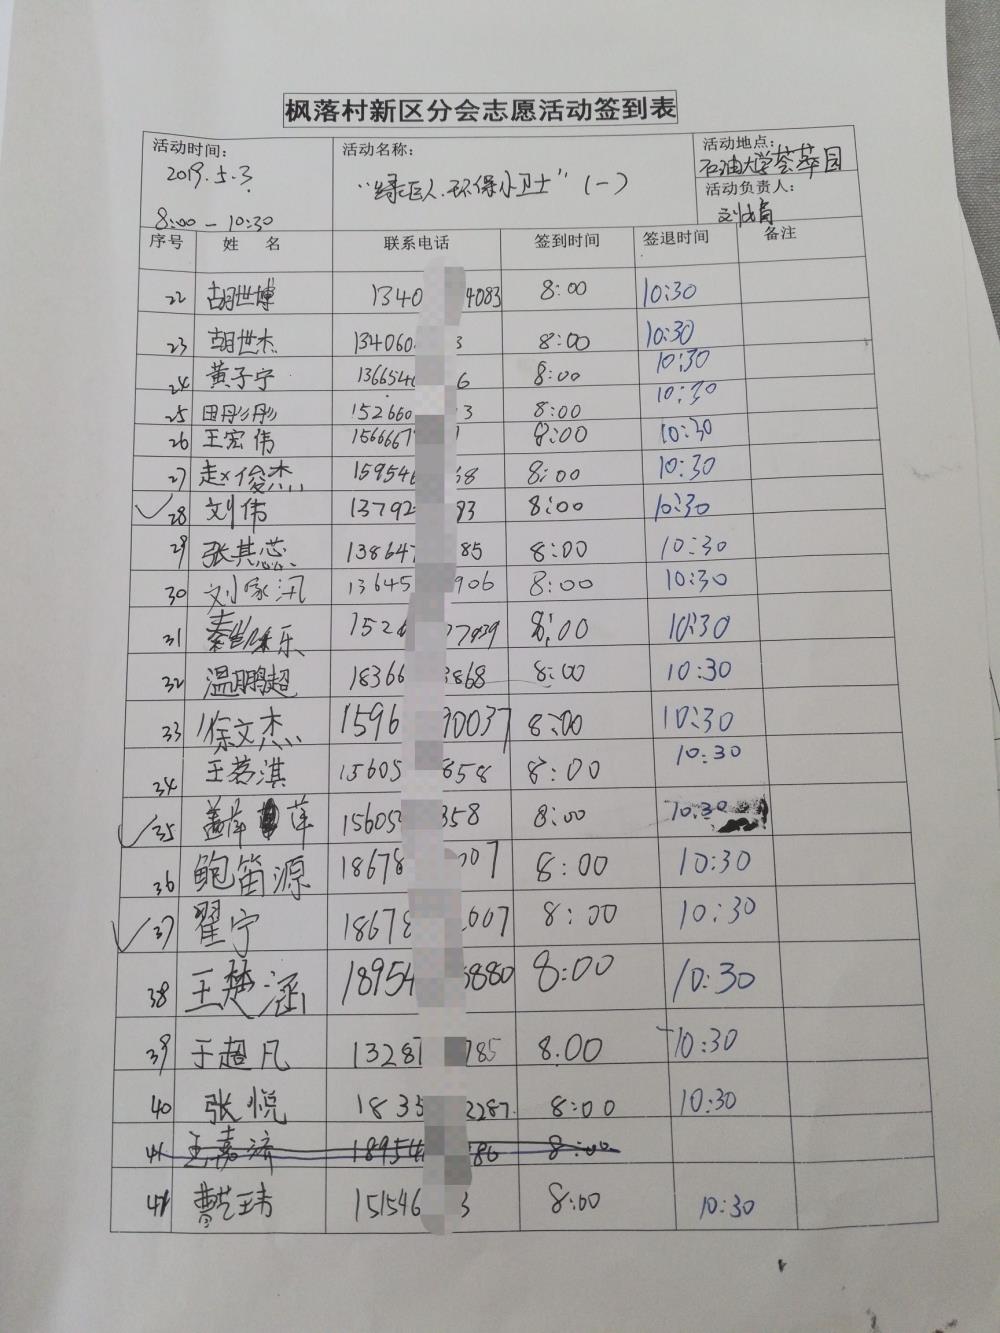 枫落村新区分会志愿活动签到表
活动时间： 活动名称： 活动地点：
2019.5.3 "绿巨人.环保小卫士"（一） 石油大学荟萃园
活动负责人：
8:00 — 10:30
序号 姓 名 联系电话 签到时间 签退时间 备注
22 胡世博 1340 4083 8:00 10:30
23 胡世杰 134060 3 8:00 10:30
24 黄子宁 136654 6 8:00 10:30
25 田彤彤 152660 3 8:00 10:30
26 王宏伟 1566667 8:00 10:30
27 赵俊杰 159546 68 8:00 10:30
28 刘伟 13792 93 8:00 10:30
29 张其蕊 138647 85 8:00 10:30
30 刘家汛 13645 906 8:00 10:30
31 秦 乐 152 7939 8:00 10:30
32 温鹏超 18366 3868 8:00 10:30
33 徐文杰 1596 90037 8:00 10:30
34 王若淇 15605 858 8:00 10:30
35 15605 358 8:00 10:30
36 鲍笛源 18678 007 8:00 10:30
37 翟宁 18678 007 8:00 10:30
38 王楚涵 18954 6880 8:00 10:30
39 于超凡 13287 785 8.00 10:30
40 张悦 1835 2287 8:00 10:30
41 王嘉济 18954 86 8:00
42 曹艺玮 151546 3 8:00 10:30